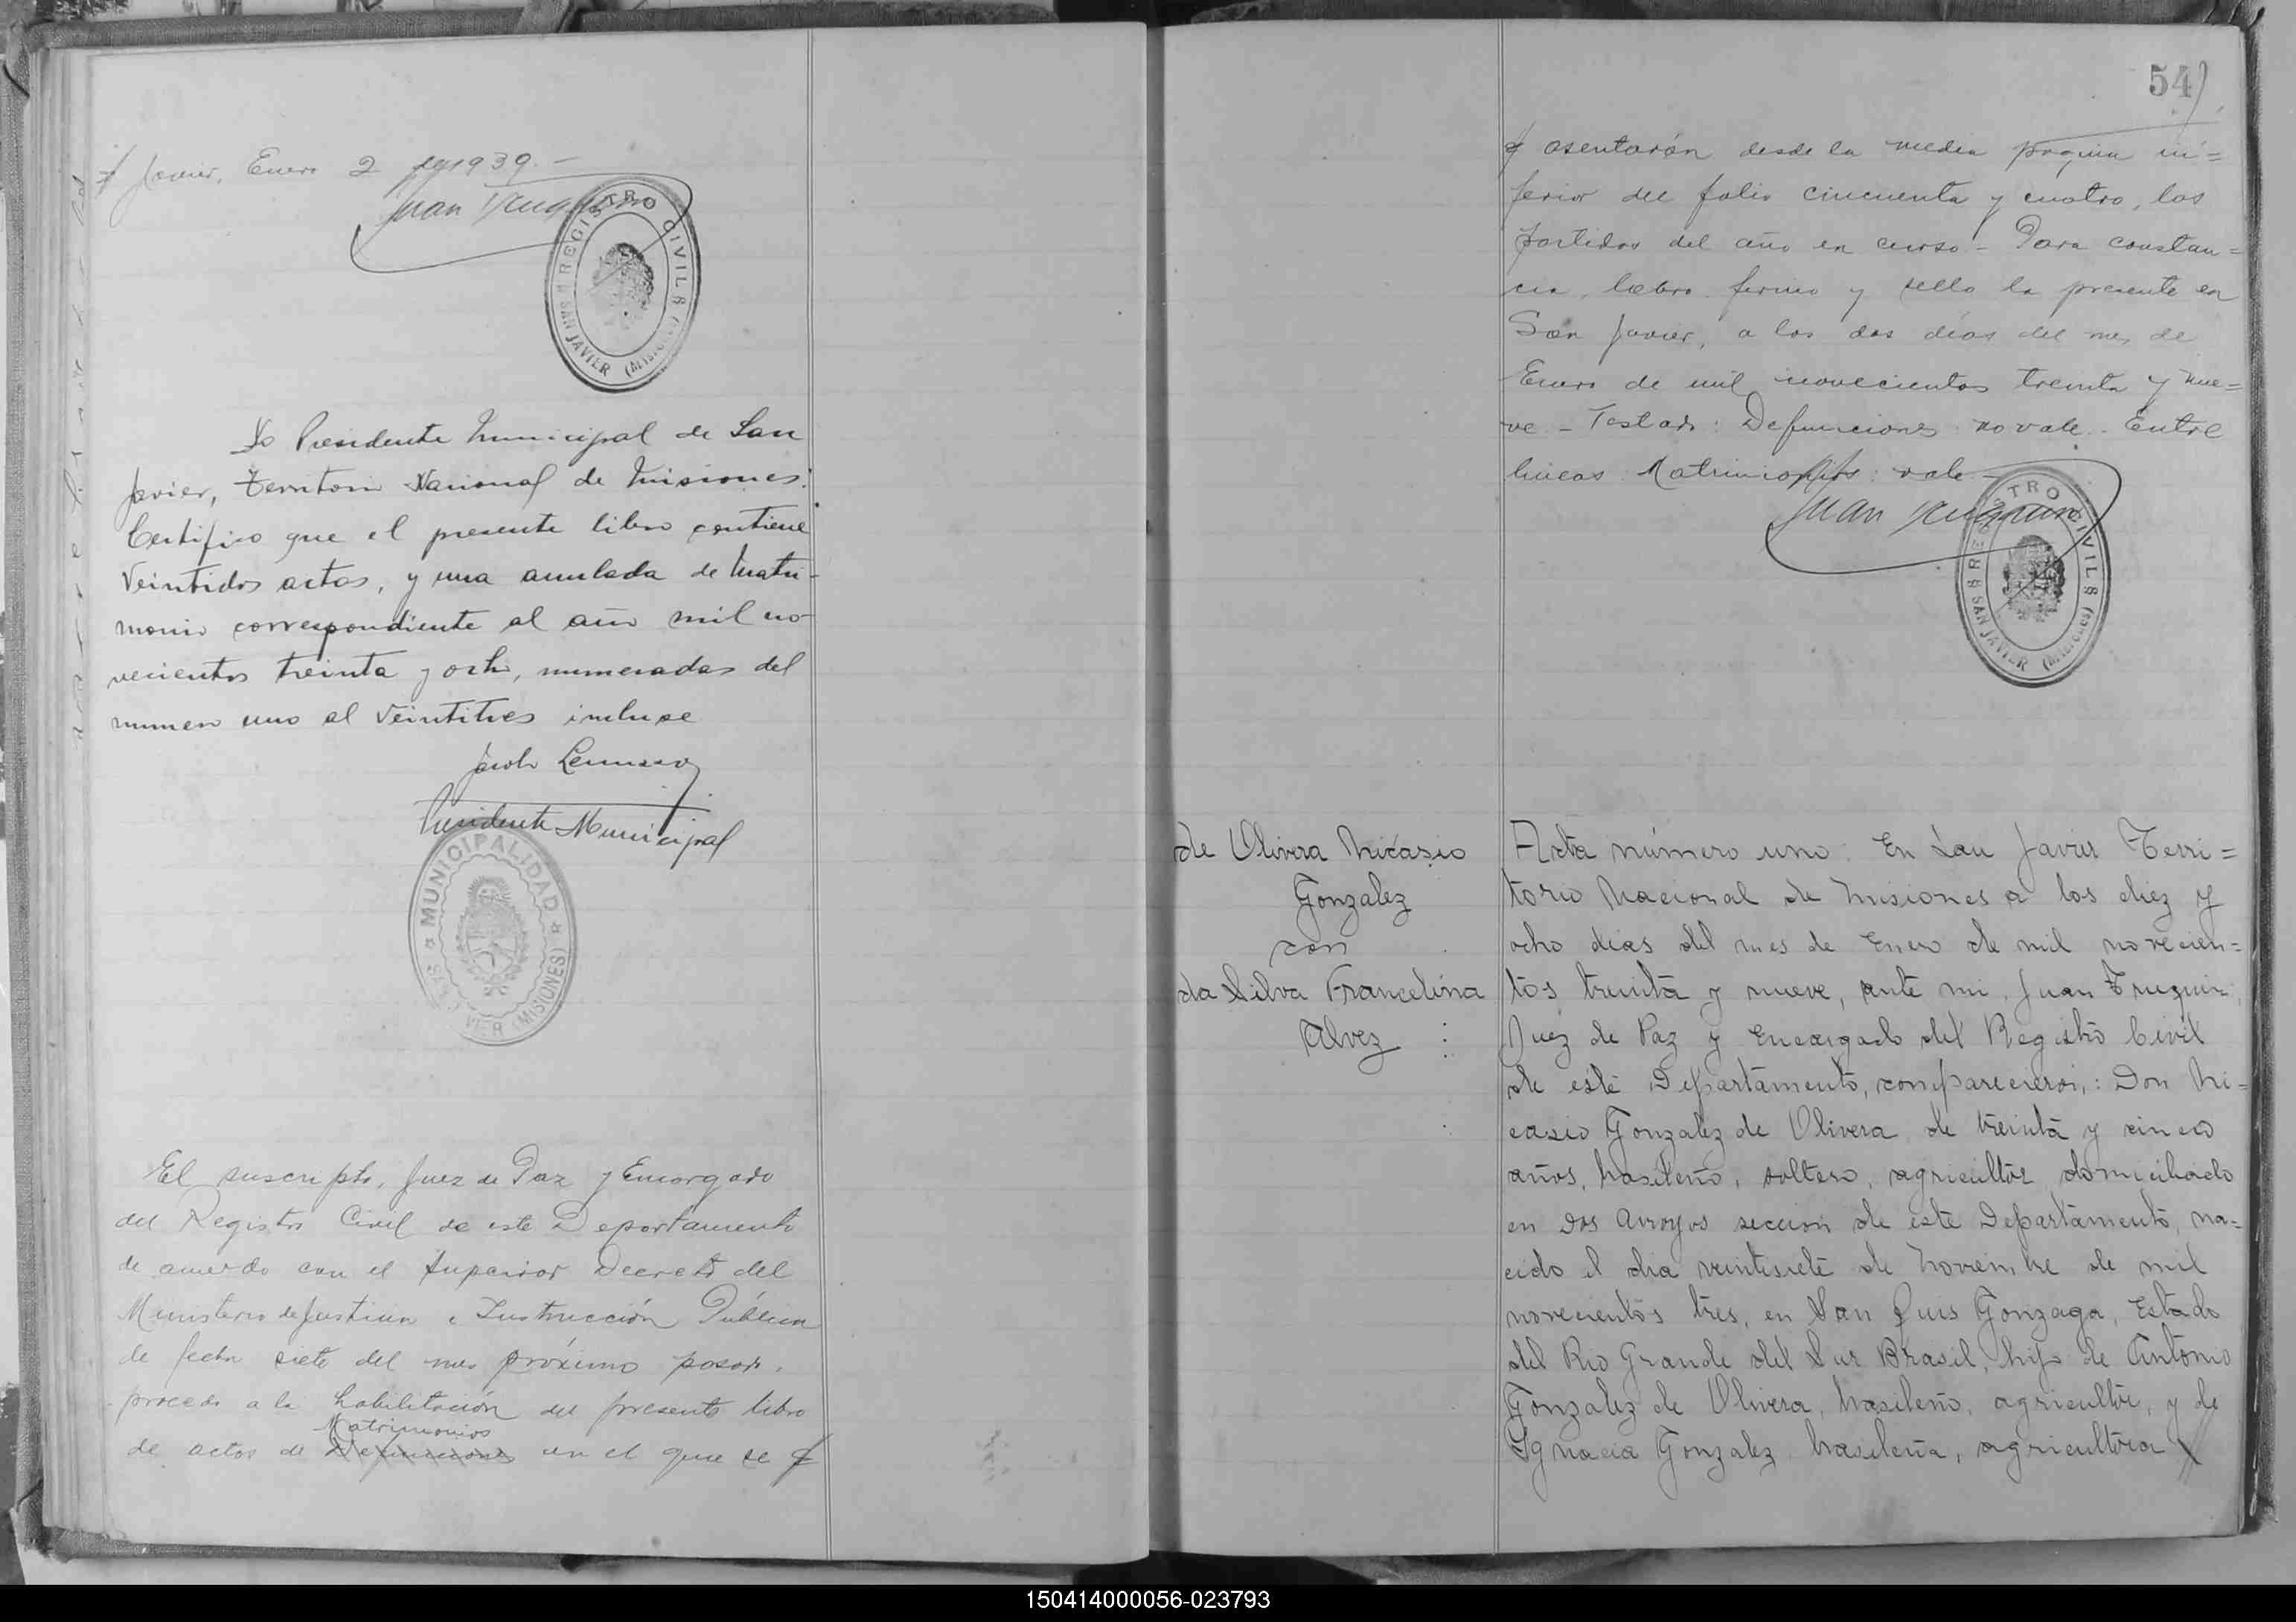 Javier, Enero 2 de 1939.-
Juan
REGISTRO CIVIL
SAN JAVIER (MISIONES)
Yo Presidente Municipal de San
Javier, Territorio Nacional de Misiones:
Certifico que el presente libro contiene
Veintidos actas, y una anulada de Matri-
monio correspondiente al año mil no-
vecientos treinta y ocho, numeradas del
numero uno al Veintitres incluse
Presidente Municipal
MUNICIPALIDAD
SAN JAVIER (MISIONES)
El suscripto, Juez de Paz y Encargado
del Registro Civil de este Departamento
de acuerdo con el Superior Decreto del
Ministerio de Justicia e Instrucción Pública
de fecha siete del mes próximo pasado,
procedo a la habilitación del presente libro
Matrimonios
de actas de Defunciones en el que se
54
asentarán desde la media pagina in=
ferior del folio cincuenta y cuatro, las
partidas del año en curso - Para constan=
cia, labro firmo y sello la presente en
San Javier, a los dos días del mes de
Enero de mil novecientos treinta y nue=
ve - Testado: Defunciones: no vale. Entre
lineas: Matrimonios: vale -
Juan
REGISTRO CIVIL
SAN JAVIER (MISIONES)
de Olivera Nicasio
Gonzalez
con
da Silva Francelina
Alvez
Acta número uno: En San Javier Terri=
torio Nacional de Misiones a los diez y
ocho dias del mes de Enero de mil novecien=
tos treinta y nueve, ante mi, Juan Truquin,
Juez de Paz y Encargado del Registro Civil
de este Departamento, comparecieron,: Don Ni=
casio Gonzalez de Olivera de treinta y cinco
años, brasileño, soltero, agricultor domiciliado
en Dos Arroyos seccion de este Departamento, na=
cido el dia veintisiete de Noviembre de mil
novecientos tres, en San Luis Gonzaga, Estado
del Rio Grande del Sur Brasil, hijo de Antonio
Gonzalez de Olivera, brasileño, agricultor, y de
Ignacia Gonzalez brasileña, agricultora
150414000056-023793